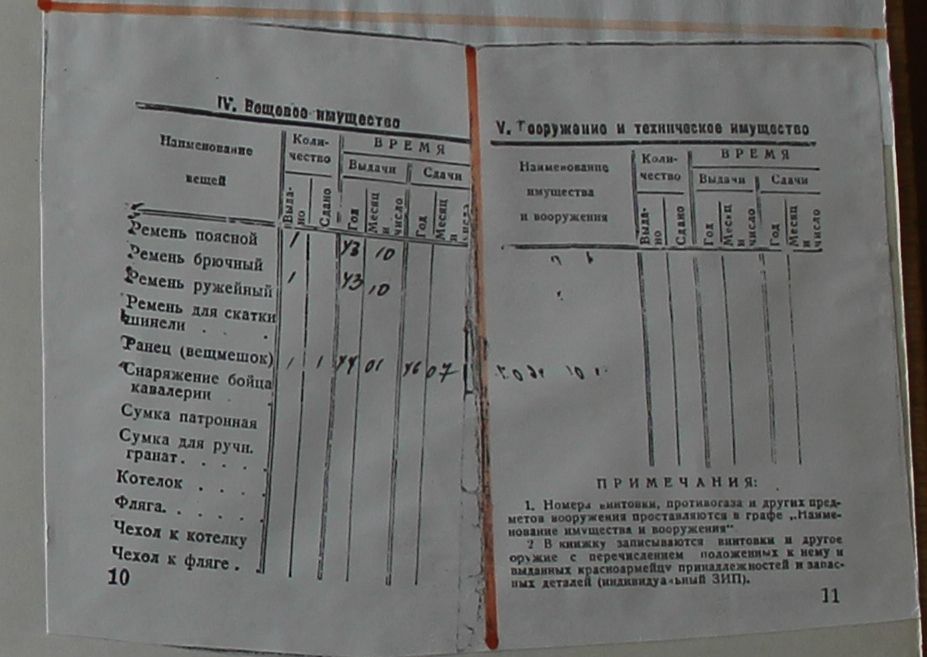 IV. Вещевое имущество
Наименование
вещей
Коли-
чество
ВРЕМЯ
Выдачи
Сдачи
Выда-
но
Сдано
Год
Месяц
и
число
Год
Месяц
и
число
Ремень поясной 1 43 10
Ремень брючный
Ремень ружейный 1 43 10
Ремень для скатки
шинели . .
Ранец (вещмешок) 1 1 44 01 46 07
Снаряжение бойца
кавалерии .
Сумка патронная
Сумка для ручн.
гранат. . . . .
Котелок . . . .
Фляга. . . . .
Чехол к котелку
Чехол к фляге .
10
V. Вооружение и техническое имущество
Наименование
имущества
и вооружения
Коли-
чество
ВРЕМЯ
Выдачи
Сдачи
Выда-
но
Сдано
Год
Месяц
и
число
Год
Месяц
и
число
ПРИМЕЧАНИЯ:
1. Номера винтовки, противогаза и других пред-
метов вооружения проставляются в графе „Наиме-
нование имущества и вооружения"
2 В книжку записываются винтовки и другое
оружие с перечислением положенных к нему и
выданных красноармейцу принадлежностей и запас-
ных деталей (индивидуальный ЗИП).
11